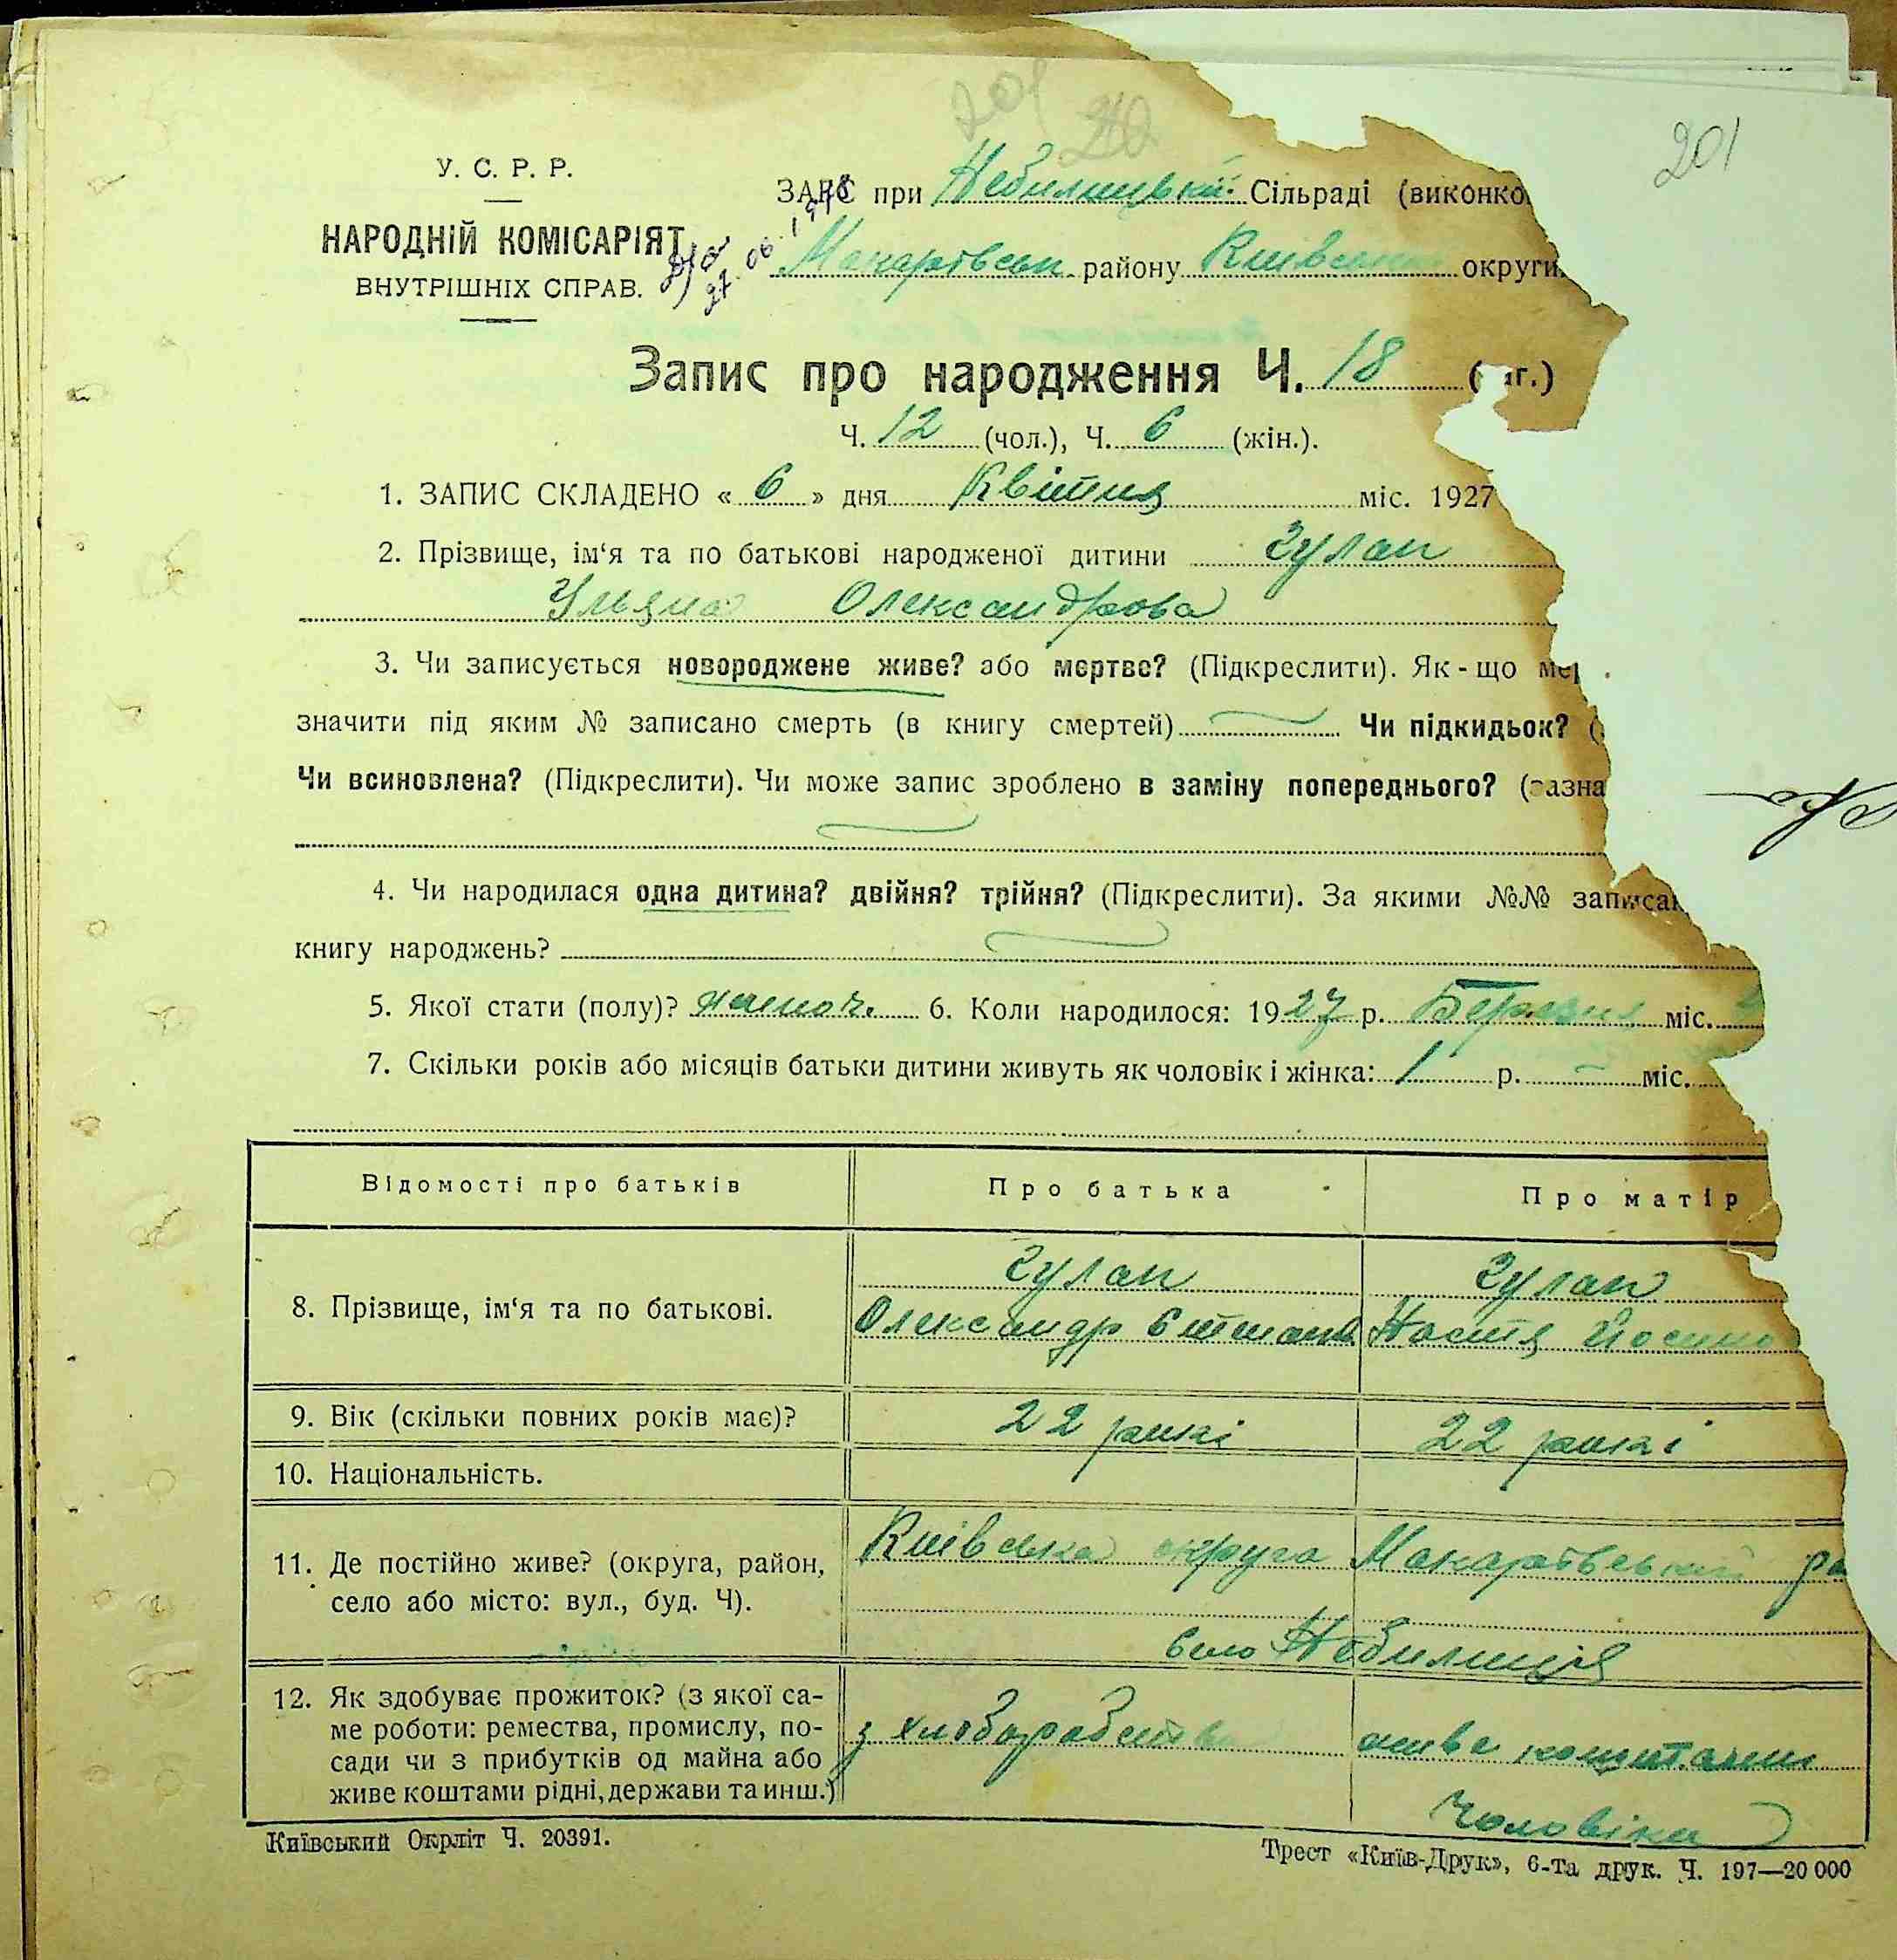 201
201
У. С. Р. Р.
ЗАГС при Небилицькій Сільраді (виконко
НАРОДНІЙ КОМІСАРІЯТ
Макарівськ. району Київської округи
ВНУТРІШНІХ СПРАВ.
Запис про народження Ч. 18 ( аг.)
Ч. 12 (чол.), Ч. 6 (жін.).
1. ЗАПИС СКЛАДЕНО « 6 » дня Квітня міс. 1927
2. Прізвище, ім‘я та по батькові народженої дитини Гулап
Ульяна Олександрова
3. Чи записується новороджене живе? або мертве? (Підкреслити). Як-що мер
значити під яким № записано смерть (в книгу смертей) Чи підкидьок? (
Чи всиновлена? (Підкреслити). Чи може запис зроблено в заміну попереднього? (зазна
4. Чи народилася одна дитина? двійня? трійня? (Підкреслити). За якими №№ записан
книгу народжень?
5. Якої стати (полу)? жіноч. 6. Коли народилося: 1927 р. Березня міс.
7. Скільки років або місяців батьки дитини живуть як чоловік і жінка: 1 р. — міс.
Відомості про батьків Про батька Про матір
8. Прізвище, ім‘я та по батькові. Гулап Гулап
Олександр Настя Йосипо
9. Вік (скільки повних років має)? 22 рокі 22 рокі
10. Національність.
11. Де постійно живе? (округа, район, село або місто: вул., буд. Ч). Київська округа Макарівський ра
село Небилиця
12. Як здобуває прожиток? (з якої са-
ме роботи: ремества, промислу, по-
сади чи з прибутків од майна або
живе коштами рідні, держави та инш.)
з хліборобства живе коштами
чоловіка
Київський Окрліт Ч. 20391.
Трест «Київ-Друк», 6-та друк. Ч. 197—20 000